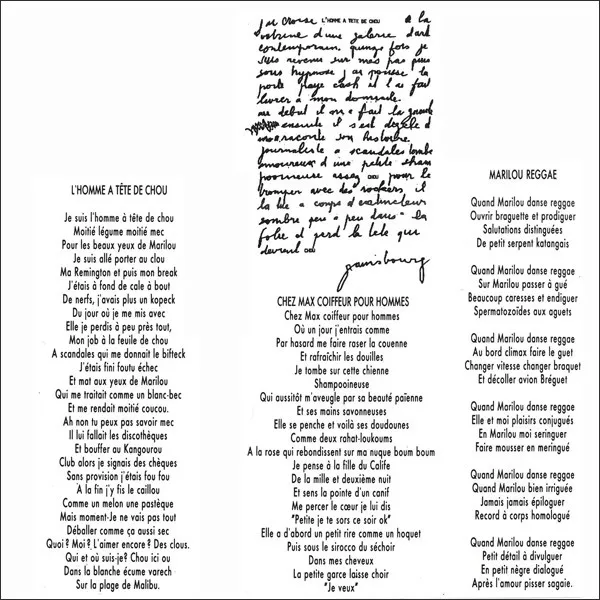 j'ai croisé L'HOMME A TÊTE DE CHOU à la
vitrine d'une galerie d'art
contemporain. quinze fois je
suis revenu sur mes pas puis
sous hypnose j'ai poussé la
porte payé cash et l'ai fait
livrer à mon domicile.
au début il m'a fait la gueule
ensuite il s'est dégelé et
m'a raconté son histoire.
journaliste à scandales tombé
amoureux d'une petite sham
pooineuse assez chou pour le
tromper avec des rockers, il
la tue à coups d'extincteur
sombre peu à peu dans la
folie et perd la tête qui
devient chou
gainsbourg
L'HOMME A TÊTE DE CHOU
Je suis l'homme à tête de chou
Moitié légume moitié mec
Pour les beaux yeux de Marilou
Je suis allé porter au clou
Ma Remington et puis mon break
J'étais à fond de cale à bout
De nerfs, j'avais plus un kopeck
Du jour où je me mis avec
Elle je perdis à peu près tout,
Mon job à la feuille de chou
A scandales qui me donnait le bifteck
J'étais fini foutu échec
Et mat aux yeux de Marilou
Qui me traitait comme un blanc-bec
Et me rendait moitié coucou.
Ah non tu peux pas savoir mec
Il lui fallait les discothèques
Et bouffer au Kangourou
Club alors je signais des chèques
Sans provision j'étais fou fou
A la fin j'y fis le caillou
Comme un melon une pastèque
Mais moment-Je ne vais pas tout
Déballer comme ça aussi sec
Quoi? Moi? L'aimer encore? Des clous.
Qui et où suis-je? Chou ici ou
Dans la blanche écume varech
Sur la plage de Malibu.
CHEZ MAX COIFFEUR POUR HOMMES
Chez Max coiffeur pour hommes
Où un jour j'entrais comme
Par hasard me faire raser la couenne
Et rafraîchir les douilles
Je tombe sur cette chienne
Shampooineuse
Qui aussitôt m'aveugle par sa beauté païenne
Et ses mains savonneuses
Elle se penche et voilà ses doudounes
Comme deux rahat-loukoums
A la rose qui rebondissent sur ma nuque boum boum
Je pense à la fille du Calife
De la mille et deuxième nuit
Et sens la pointe d'un canif
Me percer le cœur je lui dis
"Petite je te sors ce soir ok"
Elle a d'abord un petit rire comme un hoquet
Puis sous le sirocco du séchoir
Dans mes cheveux
La petite garce laisse choir
"Je veux"
MARILOU REGGAE
Quand Marilou danse reggae
Ouvrir braguette et prodiguer
Salutations distinguées
De petit serpent katangais
Quand Marilou danse reggae
Sur Marilou passer à gué
Beaucoup caresses et endiguer
Spermatozoïdes aux aguets
Quand Marilou danse reggae
Au bord climax faire le guet
Changer vitesse changer braquet
Et décoller avion Bréguet
Quand Marilou danse reggae
Elle et moi plaisirs conjugués
En Marilou moi seringuer
Faire mousser en meringué
Quand Marilou danse reggae
Quand Marilou bien irriguée
Jamais jamais épiloguer
Record à corps homologué
Quand Marilou danse reggae
Petit détail à divulguer
En petit nègre dialogué
Après l'amour pisser sagaie.